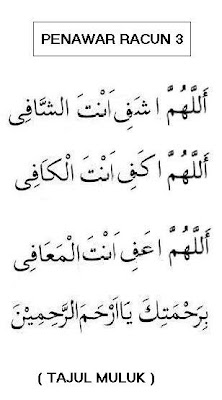 PENAWAR RACUN 3
أَللَّهُمَّ اشَفِ اَنْتَ الشَّافِى
أَللَّهُمَّ اكَفِى اَنْتَ الْكَافِى
أَللَّهُمَّ اعَفِى اَنْتَ الْمَعَافِى
بِرَحْمَتِكَ يَااَرْحَمَ الرَّحِمِيْنَ
( TAJUL MULUK )